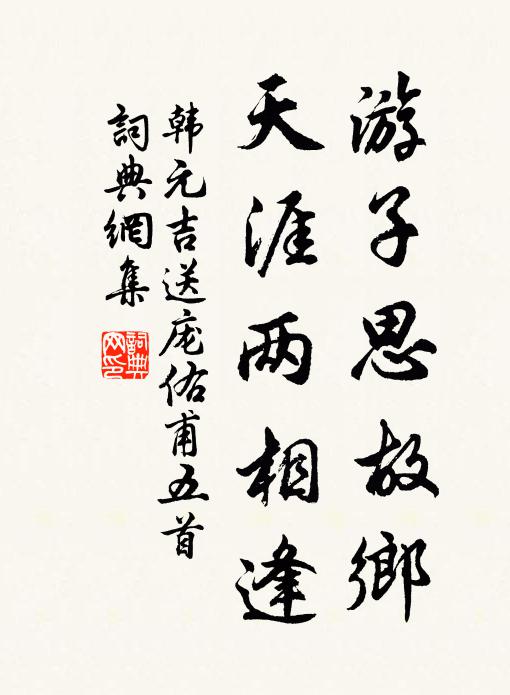 游子思故鄉
天涯两相逢
韩元吉送庞佑甫五首
詞典網集
詞典網印